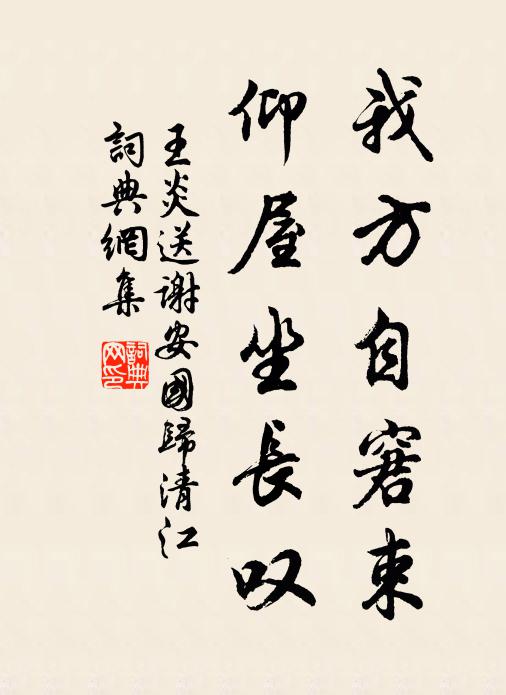 我方自窘束
仰屋坐長叹
王炎送謝安國歸清江
詞典網集
詞典网印